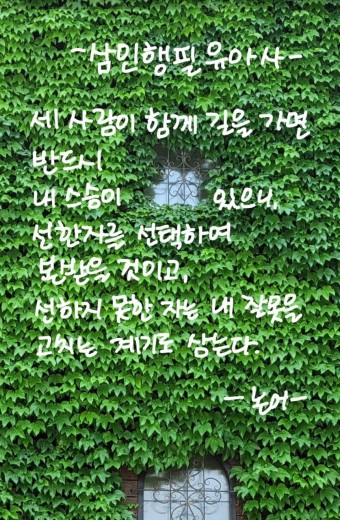 -삼인행필유아사-
세 사람이 함께 길을 가면
반드시
내 스승이 있으니,
선한자를 선택하여
본받을 것이고,
선하지 못한 자는 내 잘못을
고치는 계기로 삼는다.
-논어-